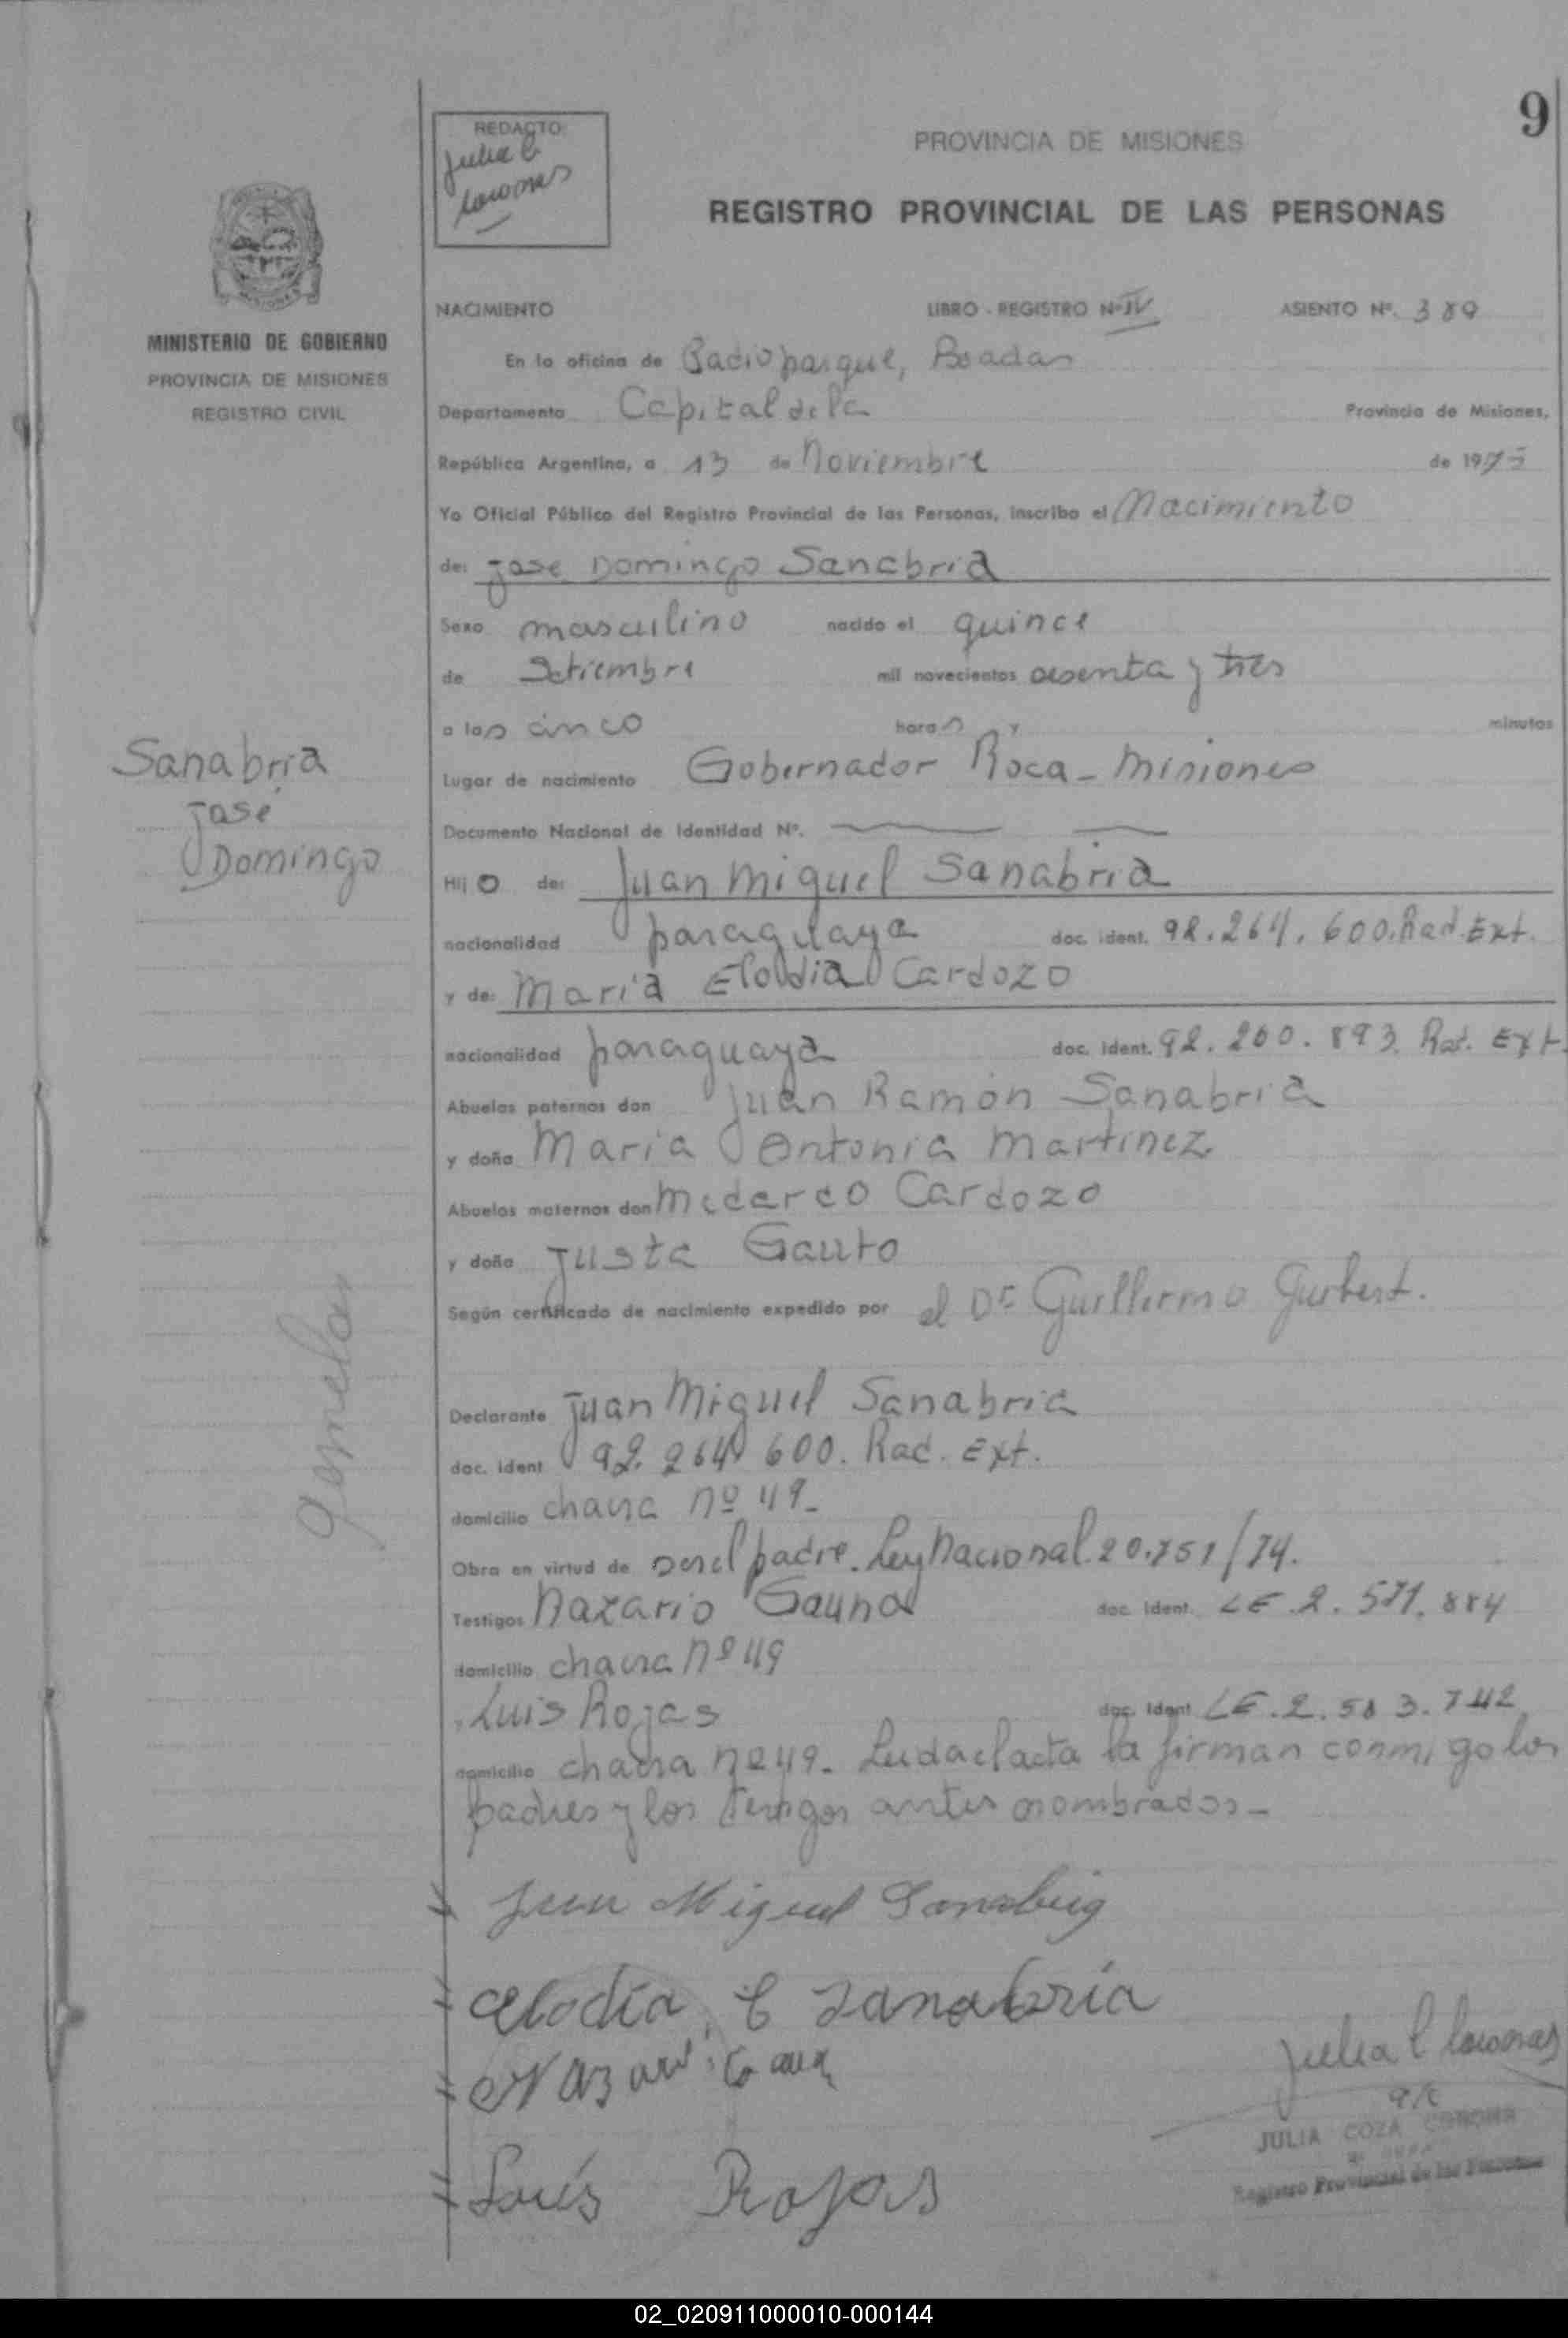 9
REDACTO:
Julia C
PROVINCIA DE MISIONES
REGISTRO PROVINCIAL DE LAS PERSONAS
MINISTERIO DE GOBIERNO
PROVINCIA DE MISIONES
REGISTRO CIVIL
NACIMIENTO LIBRO - REGISTRO Nº IV ASIENTO Nº. 389
En la oficina de Radioparque, Posadas
Departamento Capital de la Provincia de Misiones,
República Argentina, a 13 de Noviembre de 1975
Yo Oficial Público del Registro Provincial de las Personas, inscribo el Nacimiento
de: Jose Domingo Sanabria
Sexo masculino nacido el quince
de Setiembre mil novecientos sesenta y tres
a las cinco horas y minutos
Lugar de nacimiento Gobernador Roca - Misiones
Sanabria
José
Domingo
Documento Nacional de Identidad Nº.
Hijo de: Juan Miguel Sanabria
nacionalidad paraguaya doc. ident. 92.264.600. Rad. Ext.
y de: María Elodia Cardozo
nacionalidad paraguaya doc. ident. 92.260.893. Rad. Ext.
Abuelos paternos don Juan Ramón Sanabria
y doña María Antonia Martinez
Abuelos maternos don Cardozo
y doña Justa Gauto
Según certificado de nacimiento expedido por el Dr Guillermo
Gemelar
Declarante Juan Miguel Sanabria
doc. ident 92.264 600. Rad. Ext.
domicilio chacra nº 49-
Obra en virtud de ser el padre. Ley Nacional 20.751/74.
Testigos Nazario Gauna doc. ident. LE 2.571.884
domicilio chacra Nº 49
Luis Rojas doc. ident LE.2.583.742
domicilio chacra nº 49. Leida el acta la firman conmigo los
padres y los testigos antes nombrados-
Juan Miguel Sanabria
Elodia C Sanabria
Luis Rojas
Julia C
JULIA COZA CORONA
Registro Provincial de las Personas
02_020911000010-000144